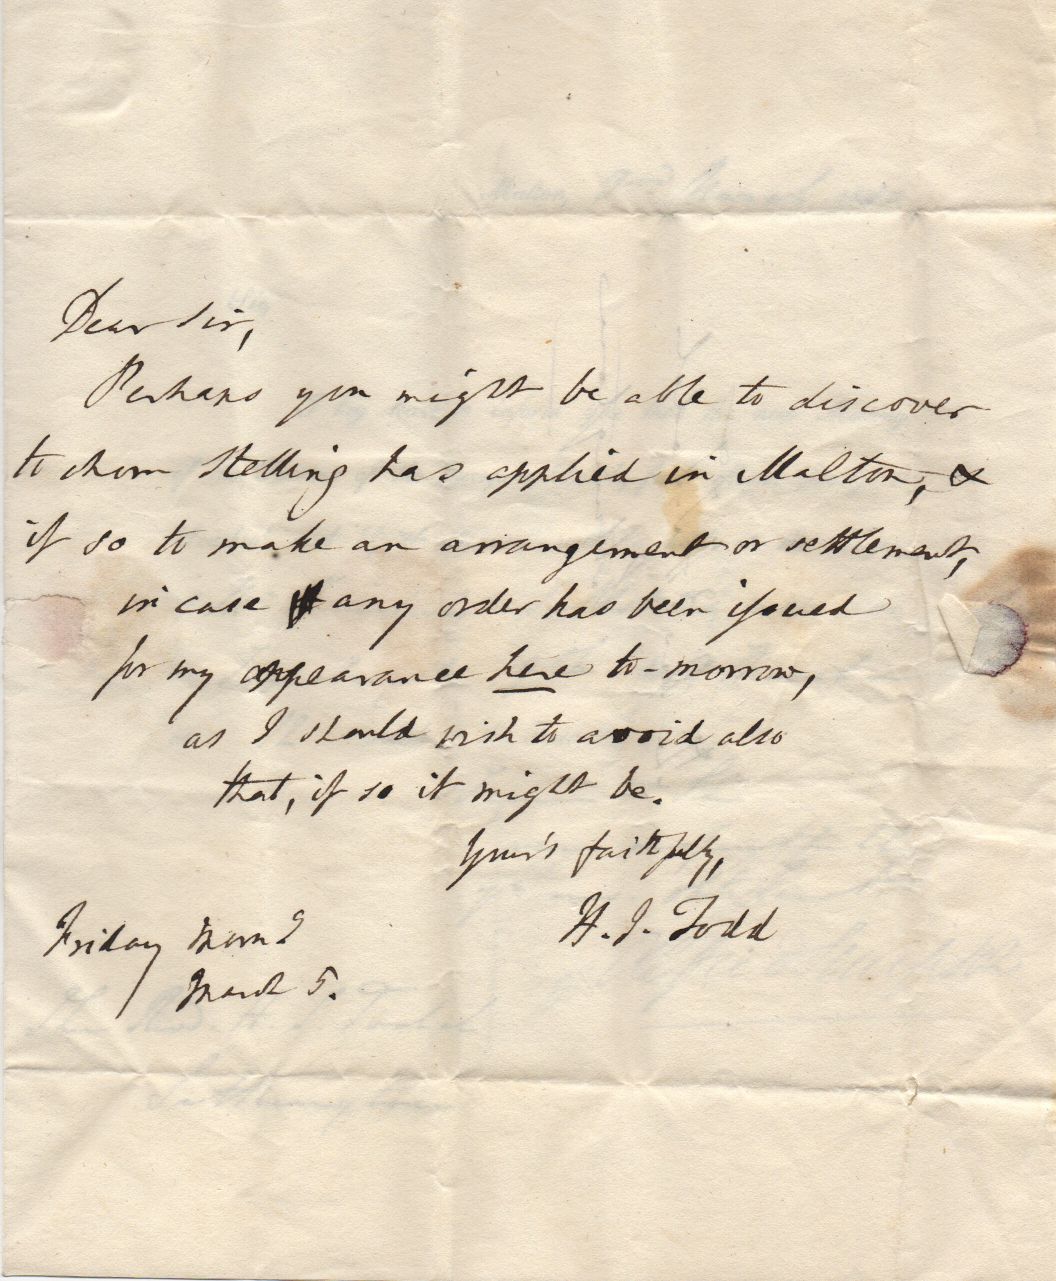 Dear Sir,
Perhaps you might be able to discover
to whom Stelling has applied in Malton, &
if so to make an arrangement or settlement,
in case any order has been issued
for my appearance here to-morrow,
as I should wish to avoid also
that, if so it might be.
Your's faithfully,
H. J. Todd
Friday Morng
March 5.